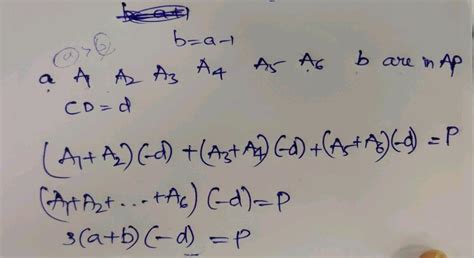 b=a-1
a > b
a A₁ A₂ A₃ A₄ A₅ A₆ b are in AP
CD = d
(A₁+A₂)(-d) + (A₃+A₄)(-d) + (A₅+A₆)(-d) = P
(A₁+A₂+...+A₆)(-d) = P
3(a+b)(-d) = P